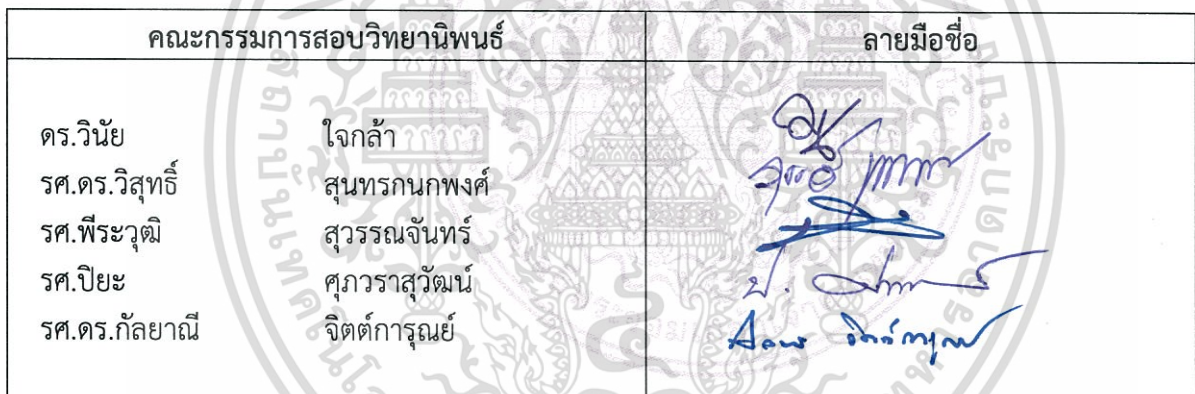 คณะกรรมการสอบวิทยานิพนธ์ ลายมือชื่อ
ดร.วินัย ใจกล้า
รศ.ดร.วิสุทธิ์ สุนทรกนกพงศ์
รศ.พีระวุฒิ สุวรรณจันทร์
รศ.ปิยะ ศุภวราสุวัฒน์
รศ.ดร.กัลยาณี จิตต์การุณย์